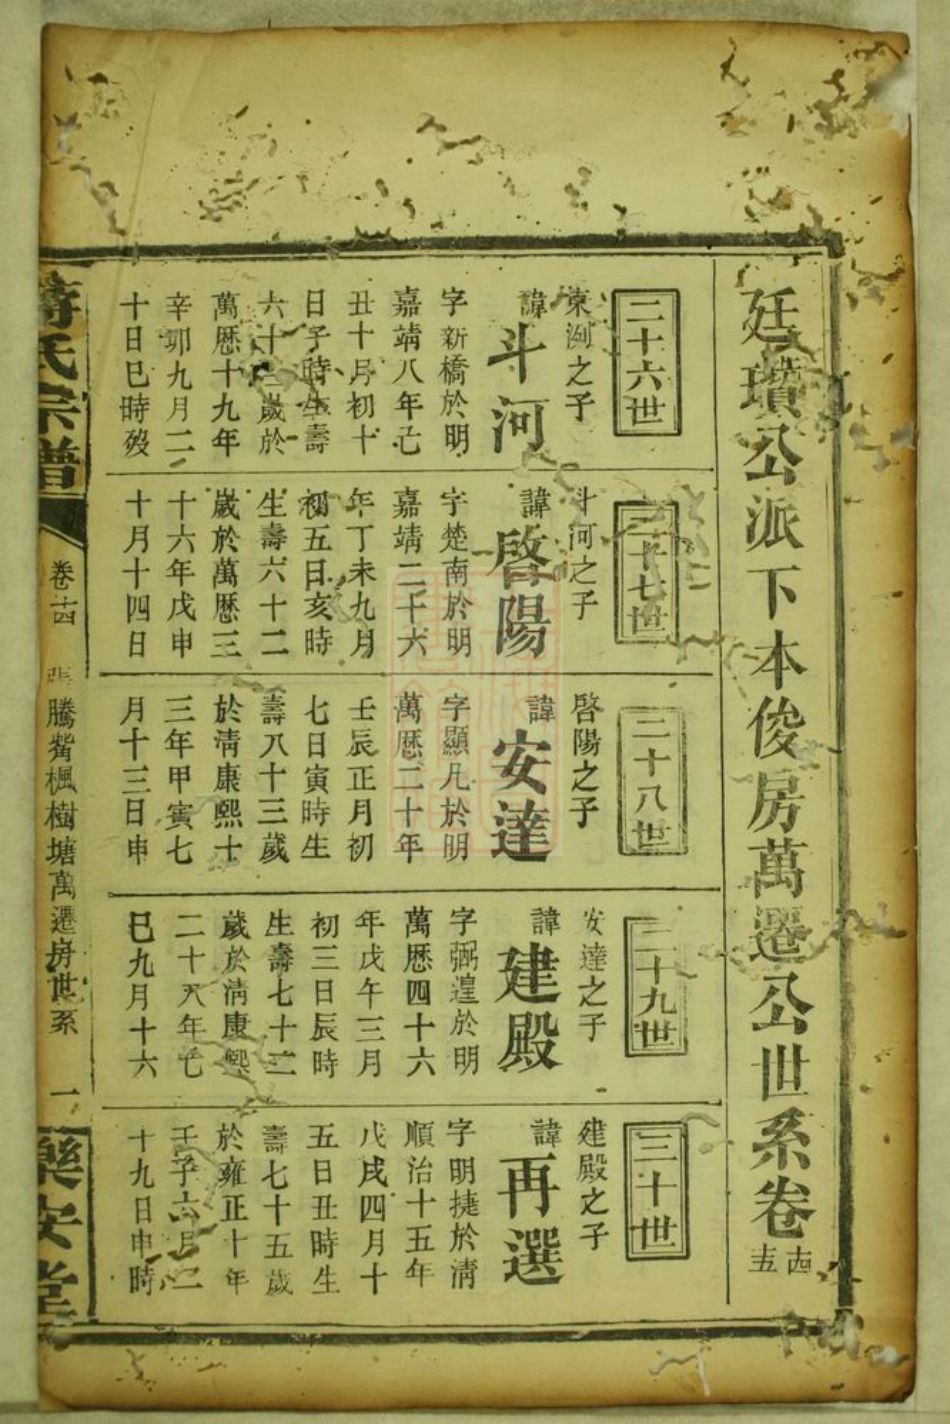 廷瓚公派下本俊房萬遷公世系卷
十四
十五
二十六世
東渕之子
諱斗河
字新橋於明
嘉靖八年己
丑十月初十
日子時生壽
六十三歲於
萬歷十九年
辛卯九月二
十日巳時歿
二十七世
斗河之子
諱啓陽
字楚南於明
嘉靖二十六
年丁未九月
初五日亥時
生壽六十二
歲於萬歷三
十六年戊申
十月十四日
二十八世
啓陽之子
諱安達
字顯凡於明
萬歷二十年
壬辰正月初
七日寅時生
壽八十三歲
於清康熙十
三年甲寅七
月十三日申
二十九世
安達之子
諱建殿
字弼遑於明
萬歷四十六
年戊午三月
初三日辰時
生壽七十二
歲於清康熙
二十八年己
巳九月十六
三十世
建殿之子
諱再選
字明捷於清
順治十五年
戊戌四月十
五日丑時生
壽七十五歲
於雍正十年
壬子六月二
十九日申時
蔣氏宗譜
卷十四
張騰鴬楓樹塘萬遷房世系
一
樂安堂